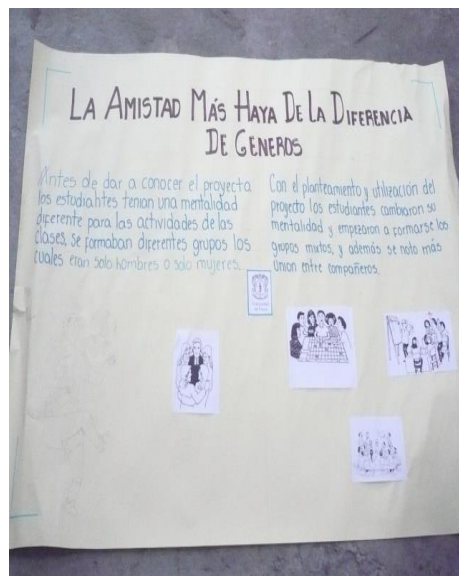 LA AMISTAD MÁS HAYA DE LA DIFERENCIA
DE GENEROS
Antes de dar a conocer el proyecto
los estudiantes tenian una mentalidad
diferente para las actividades de las
clases, se formaban diferentes grupos los
cuales eran solo hombres o solo mujeres.
Con el planteamiento y utilización del
proyecto los estudiantes cambiaron su
mentalidad y empezaron a formarse los
grupos mixtos, y además se noto más
union entre compañeros.